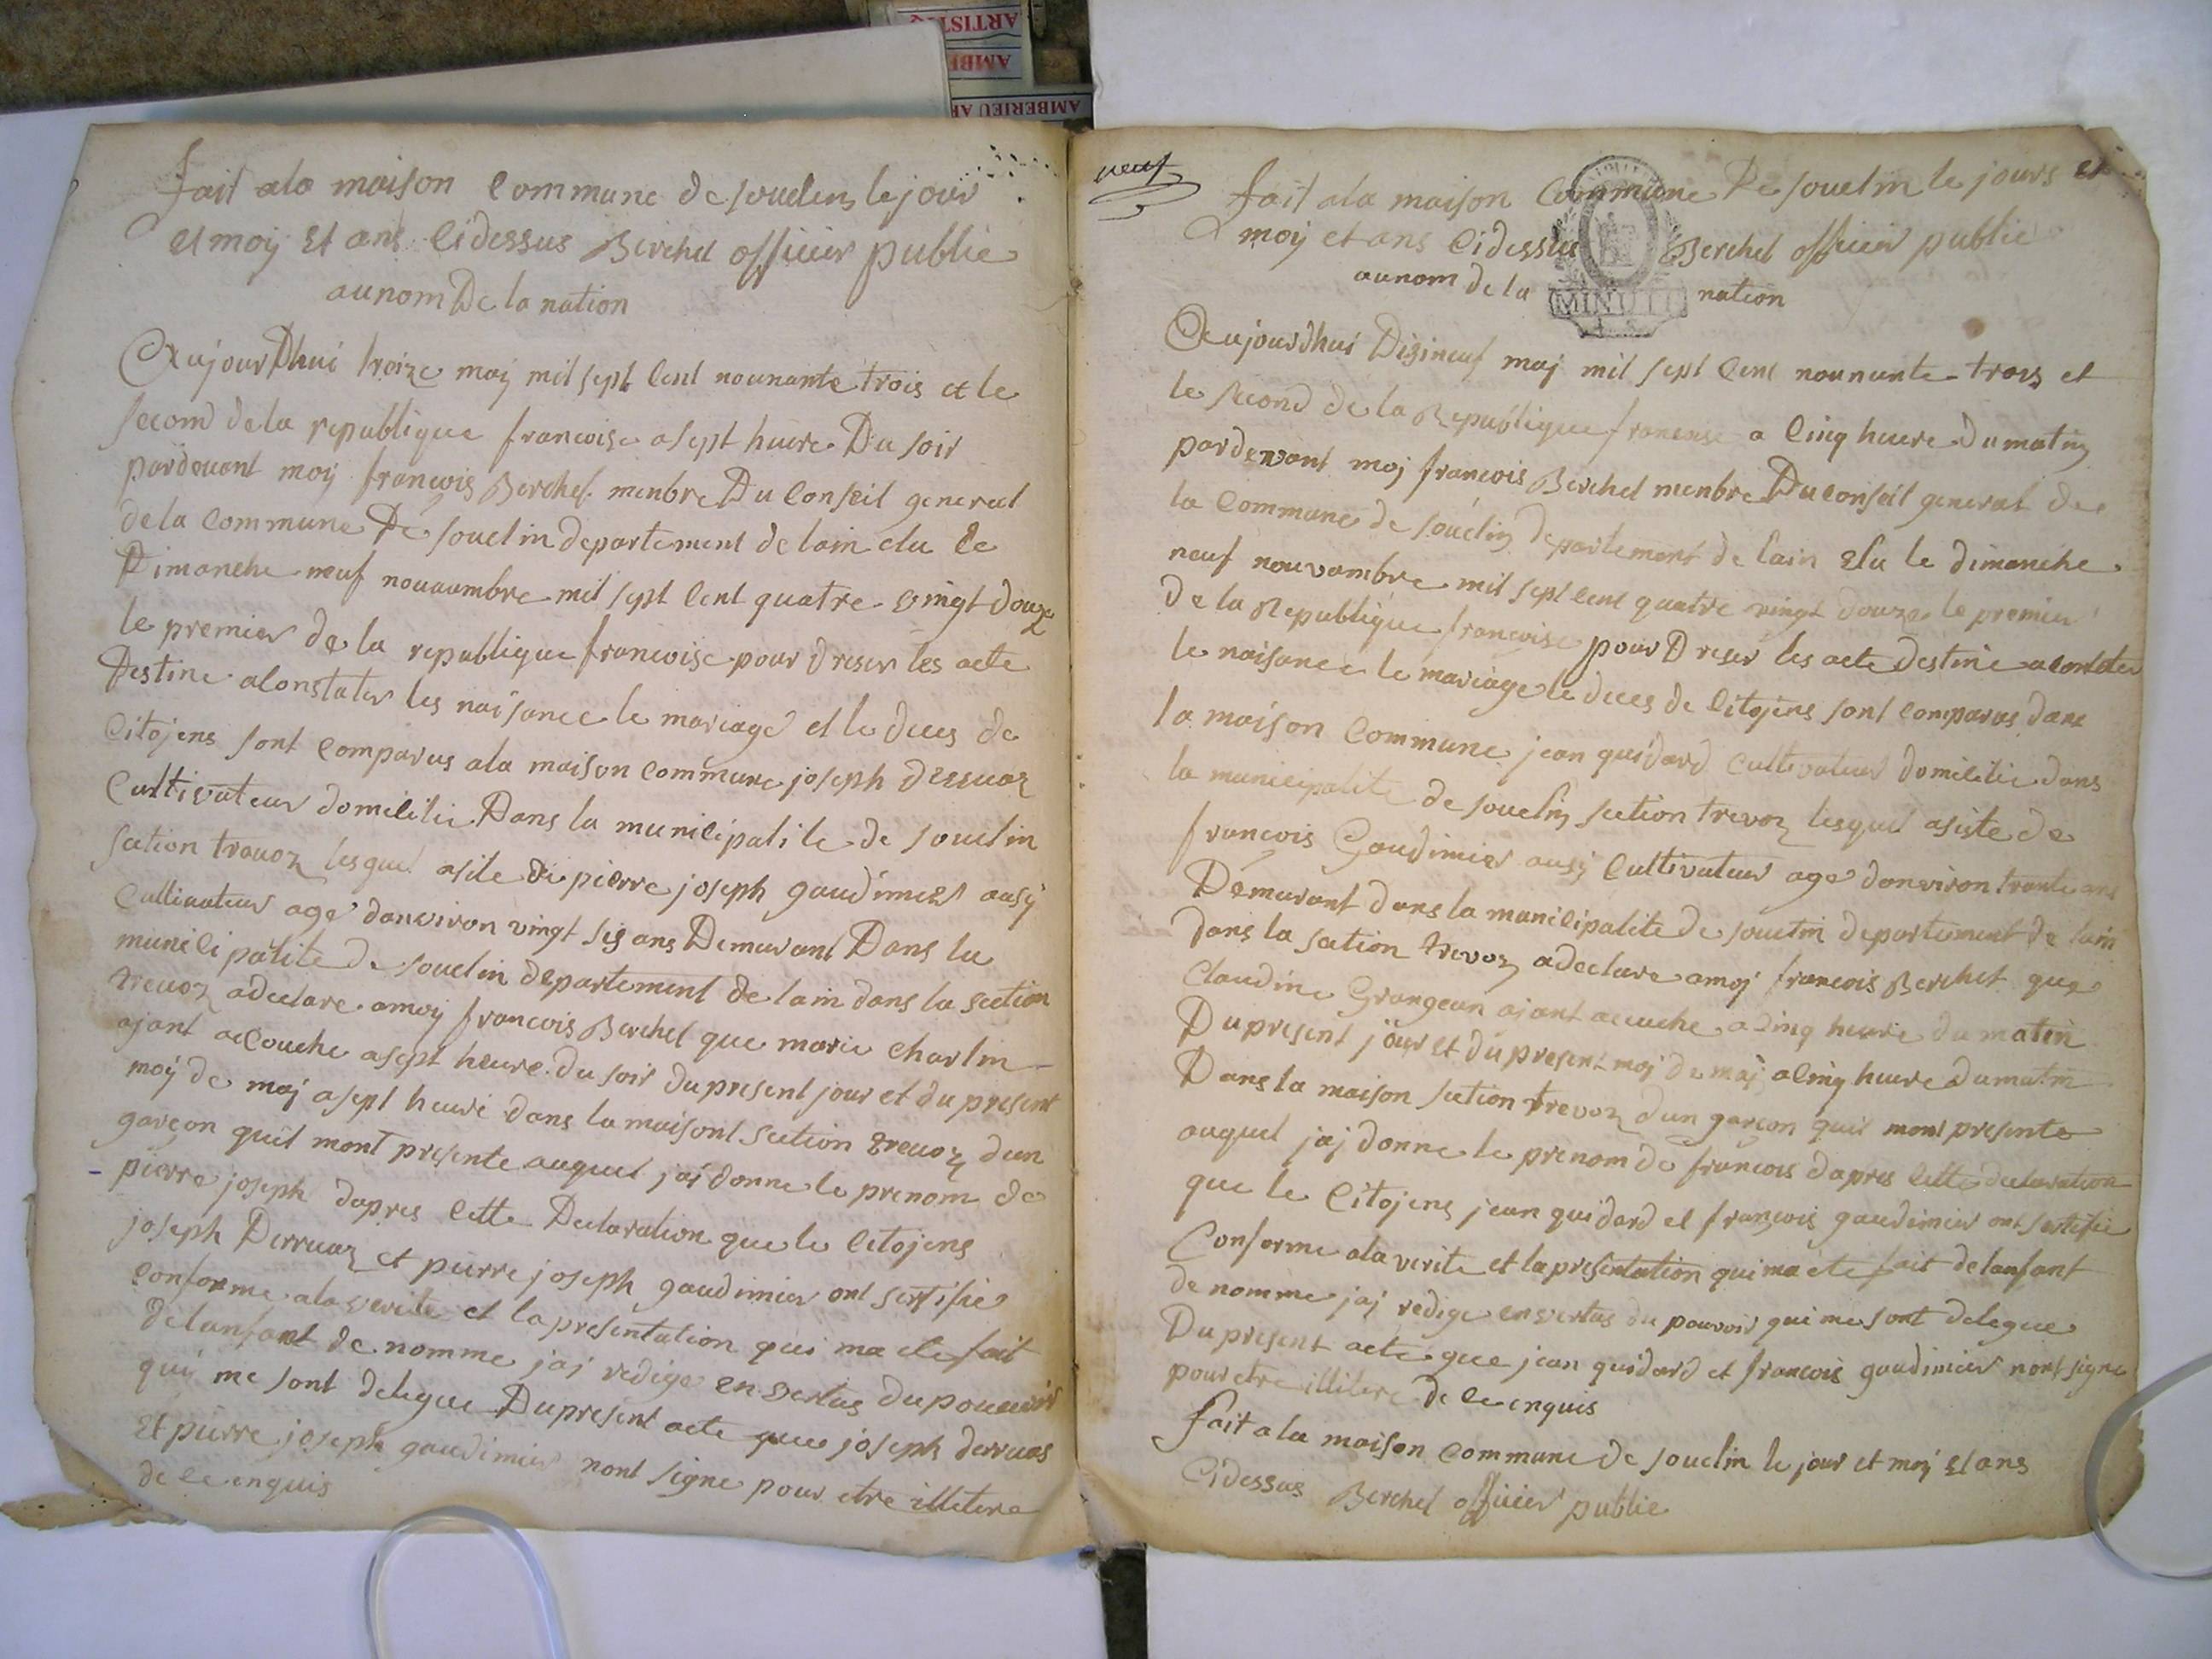 ARTISTIQ
AMBE
AMBERIEU AR
fait ala maison Commune de souclins le jour
et moy et ans Cidessus Berchet officier public
aunom De la nation
Aujour Dhui treize may mil sept Cent nounante trois et le
second dela republique francoise asept huere Du soir
pardevant moy francois Berchet menbre Du Conseil general
dela Commune De souclin departement de lain elu le
Dimanche neuf nouvambre mil sept Cent quatre vingt douze
le premier de la republique francoise pour dreser les acte
Destine aConstater les naisance le mariage et le deces de
Citojens sont Comparus ala maison Commune joseph Derruaz
Cultivateur domicilie Dans la municipalite de souclin
section trevoz lesquel asite de pierre joseph gaudimier ausy
Cultivateur age danviron vingt sis ans Demurant Dans la
municipalite de souclin departement de lain dans la section
trevoz adeclare amoy francois Berchet que marie charlin
ajant aCouche asept heure du soir du present jour et du present
moy de maj asept heure dans la maisont section trevoz dun
garçon quil mont presente auquel jaj donne le prenom de
pierre joseph dapres Cette Declaration que le Citojens
joseph Derruaz et pierre joseph gaudimier ont sertifie
Conforme ala verite et la presentation qui ma ete fait
delanfant de nomme jaj redige en vertus du pouvoir
qui me sont delegue Du present acte que joseph derruas
et pierre joseph gaudimier nont signe pour etre illitere
de Ce enquis
neuf
fait ala maison Commune De souclin le jours et
moy et ans Cidessus Berchet officier public
aunom de la nation
MINUTE
Aujourdhui Disineuf maj mil sept Cent nounante trois et
le second de la Republique franсoise a Cinq heure du matin
pardevant moj francois Berchet menbre Du conseil general de
la Commune de souclin departement de lain elu le dimanche
neuf nouvambre mil sept cent quatre vingt douze le premier
de la Republique francoise pour Dreser les acte destine aConstater
le naisance le mariage le deces de Citojens sont Comparus dans
la maison Commune jean quidard Cultivateur domicilie dans
la municipalite de souclin section trevoz lesquel asiste de
francois Gaudimier ausy Cultivateur age danviron trante ans
Demurant dans la municipalite de souclin departement de lain
dans la section trevoz adeclare amoj francois Berchet que
Claudine Grangean ajant acuche aCinq heure du matin
Du present jour et du present moj de maj aCinq heure Dumatin
Dans la maison section trevoz dun garcon quil mont presente
auquel jaj donne le prenom de françois dapres Cette declaration
que le Citojens jean quidard et françois gaudimier ont sertifie
Conforme ala verite et la presentation qui ma ete fait delanfant
de nomme jaj redige en vertus du pouvoir qui me sont delegue
Du present acte que jean quidard et francois gaudimier nont signe
pour etre illitere de Ce enquis
fait a la maison Commune de souclin le jour et moj et ans
Cidessus Berchet officier public